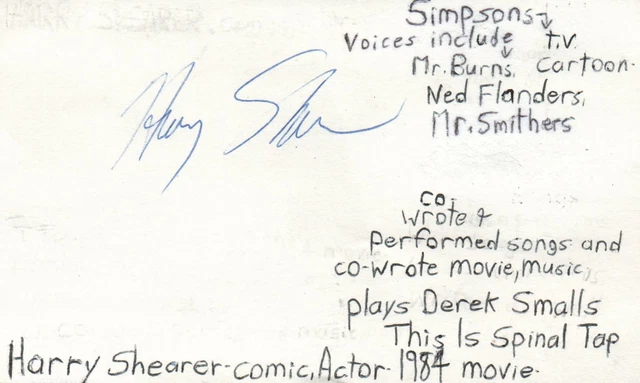 Simpsons
Voices include T.V.
Mr. Burns, Cartoon.
Ned Flanders,
Mr. Smithers
Harry Shearer
co.
wrote &
Performed songs and
co-wrote movie, music,
plays Derek Smalls
This Is Spinal Tap
Harry Shearer-comic, Actor- 1984 movie.